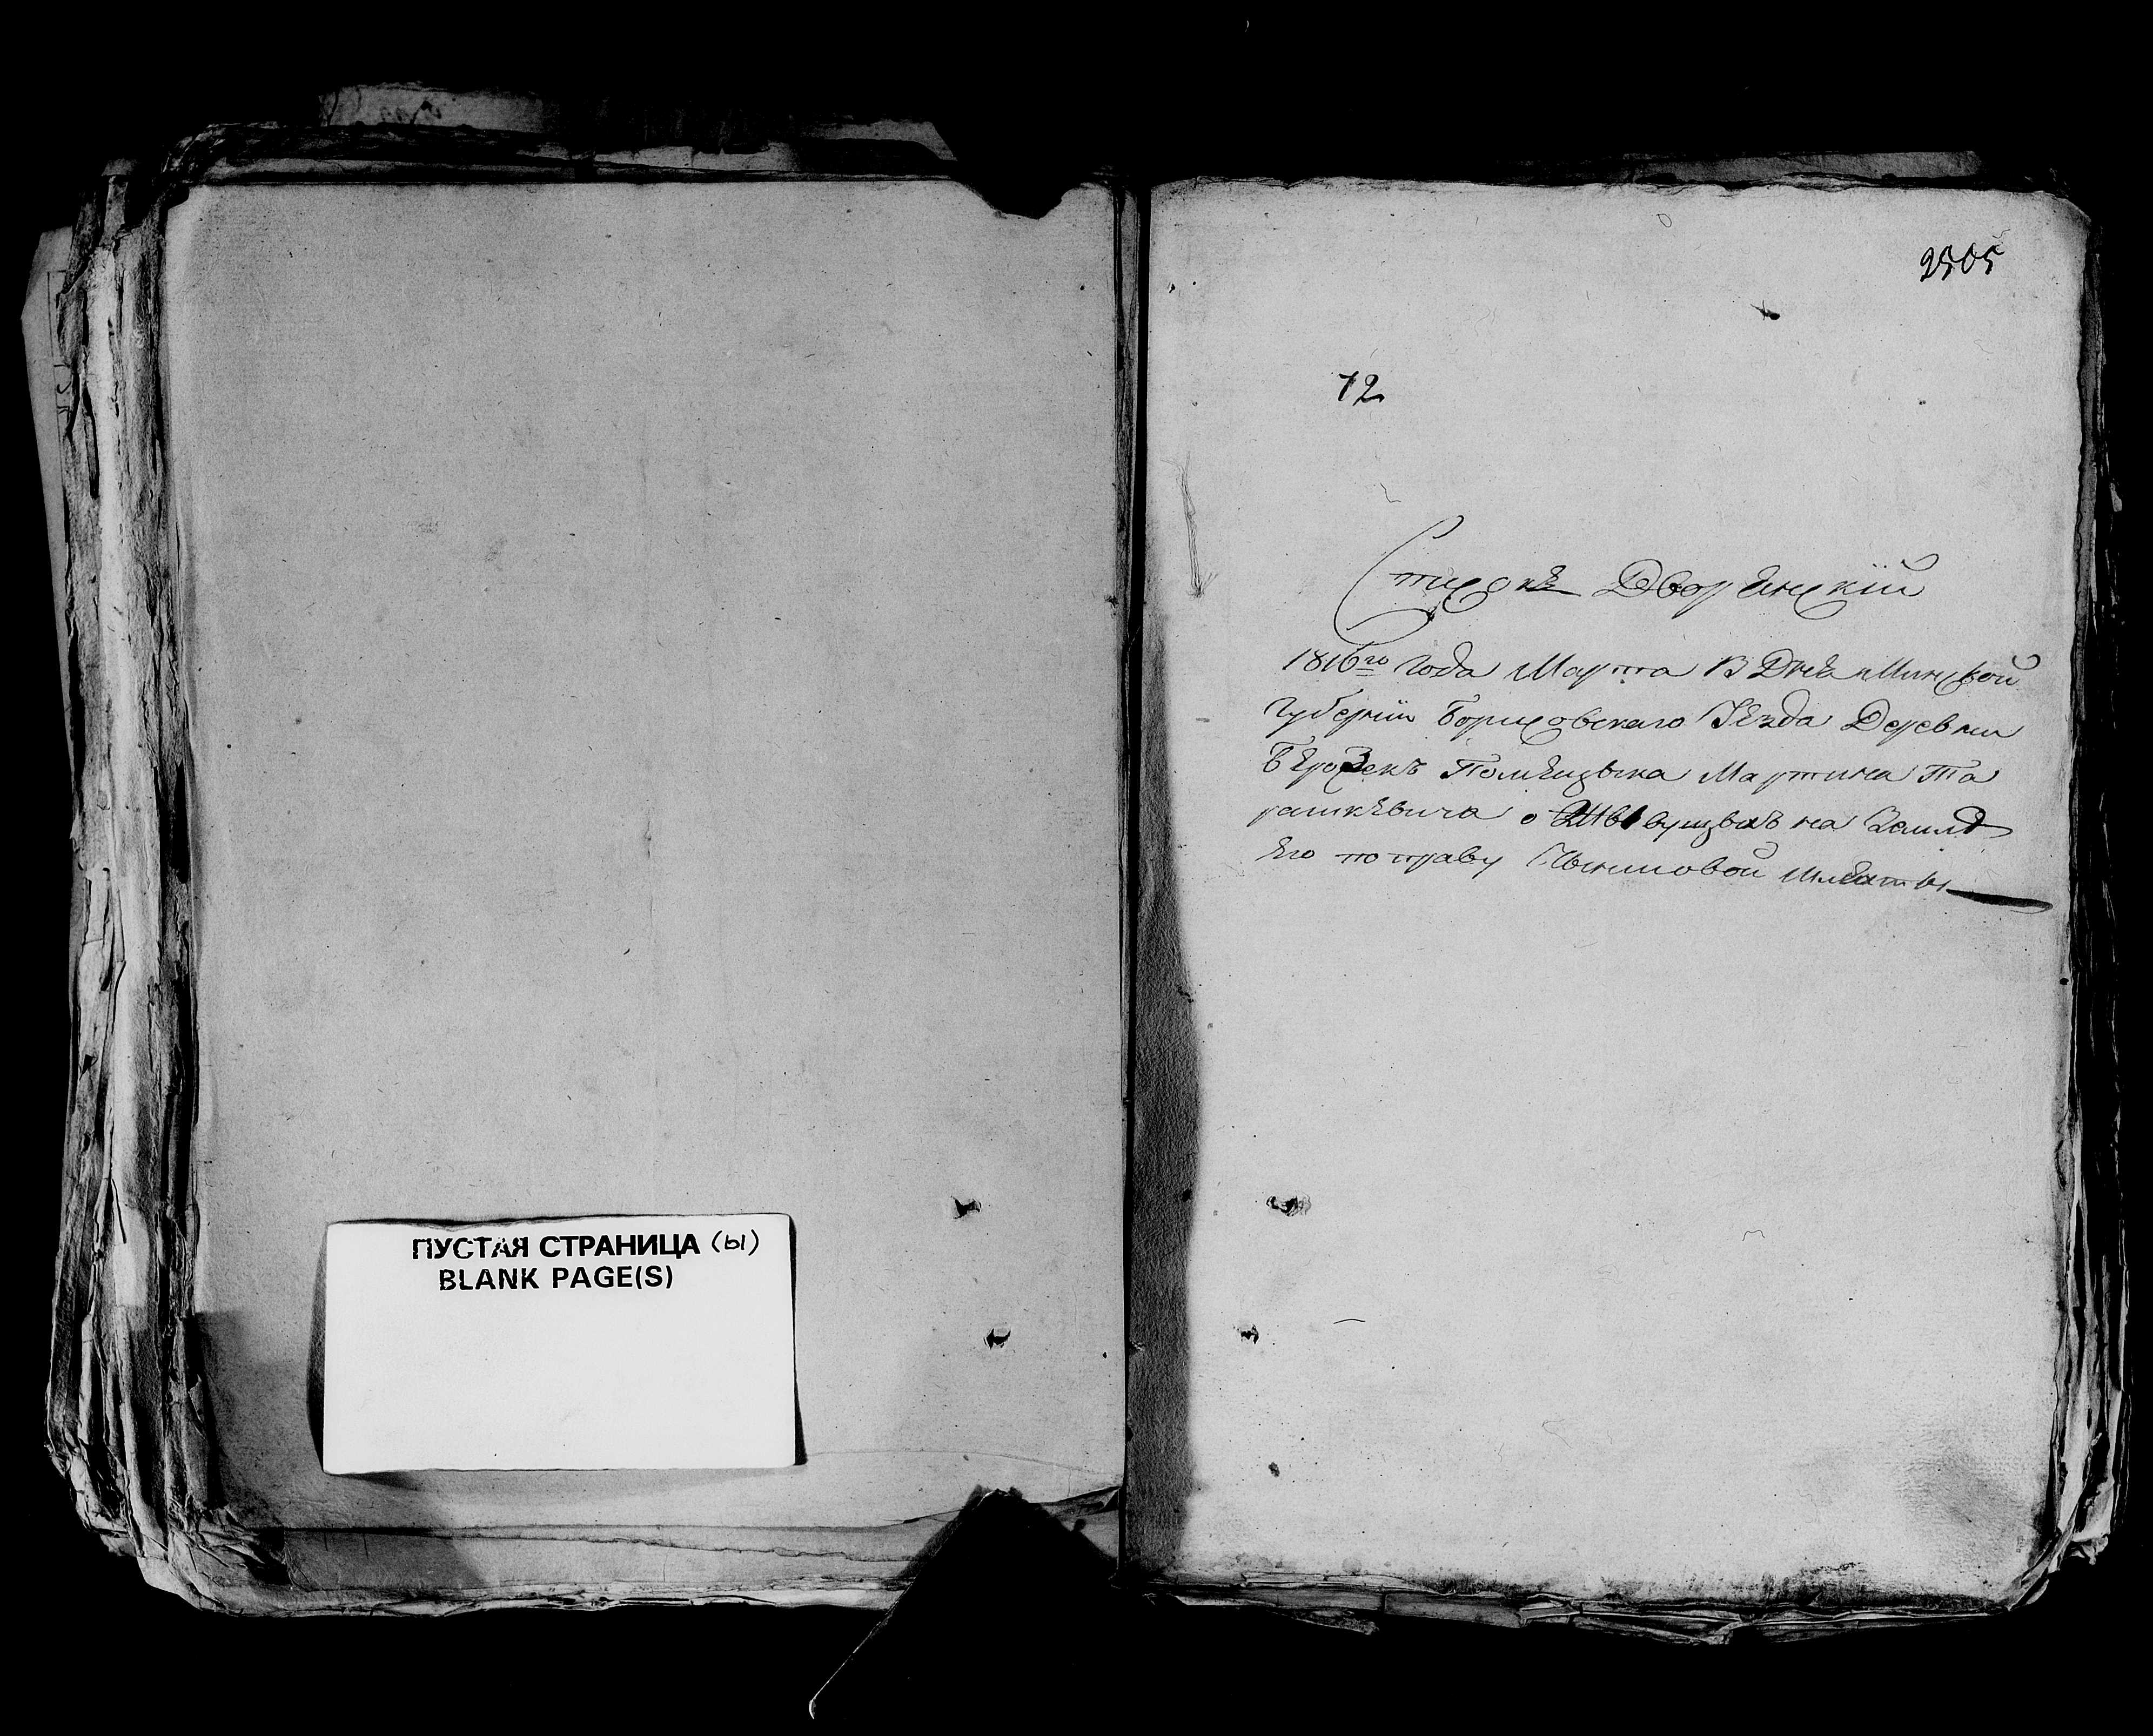 ПУСТАЯ СТРАНИЦА (ы)
BLANK PAGE(S)
2505
72
Списокъ Дворянскій
1816го Года Марта 13 Дня Минской
Губерніи Борисовскаго Уезда Деревни
Помещыка Мартина Та
рашкевича о на Земле
Его по праву Чыншовой Шляхты